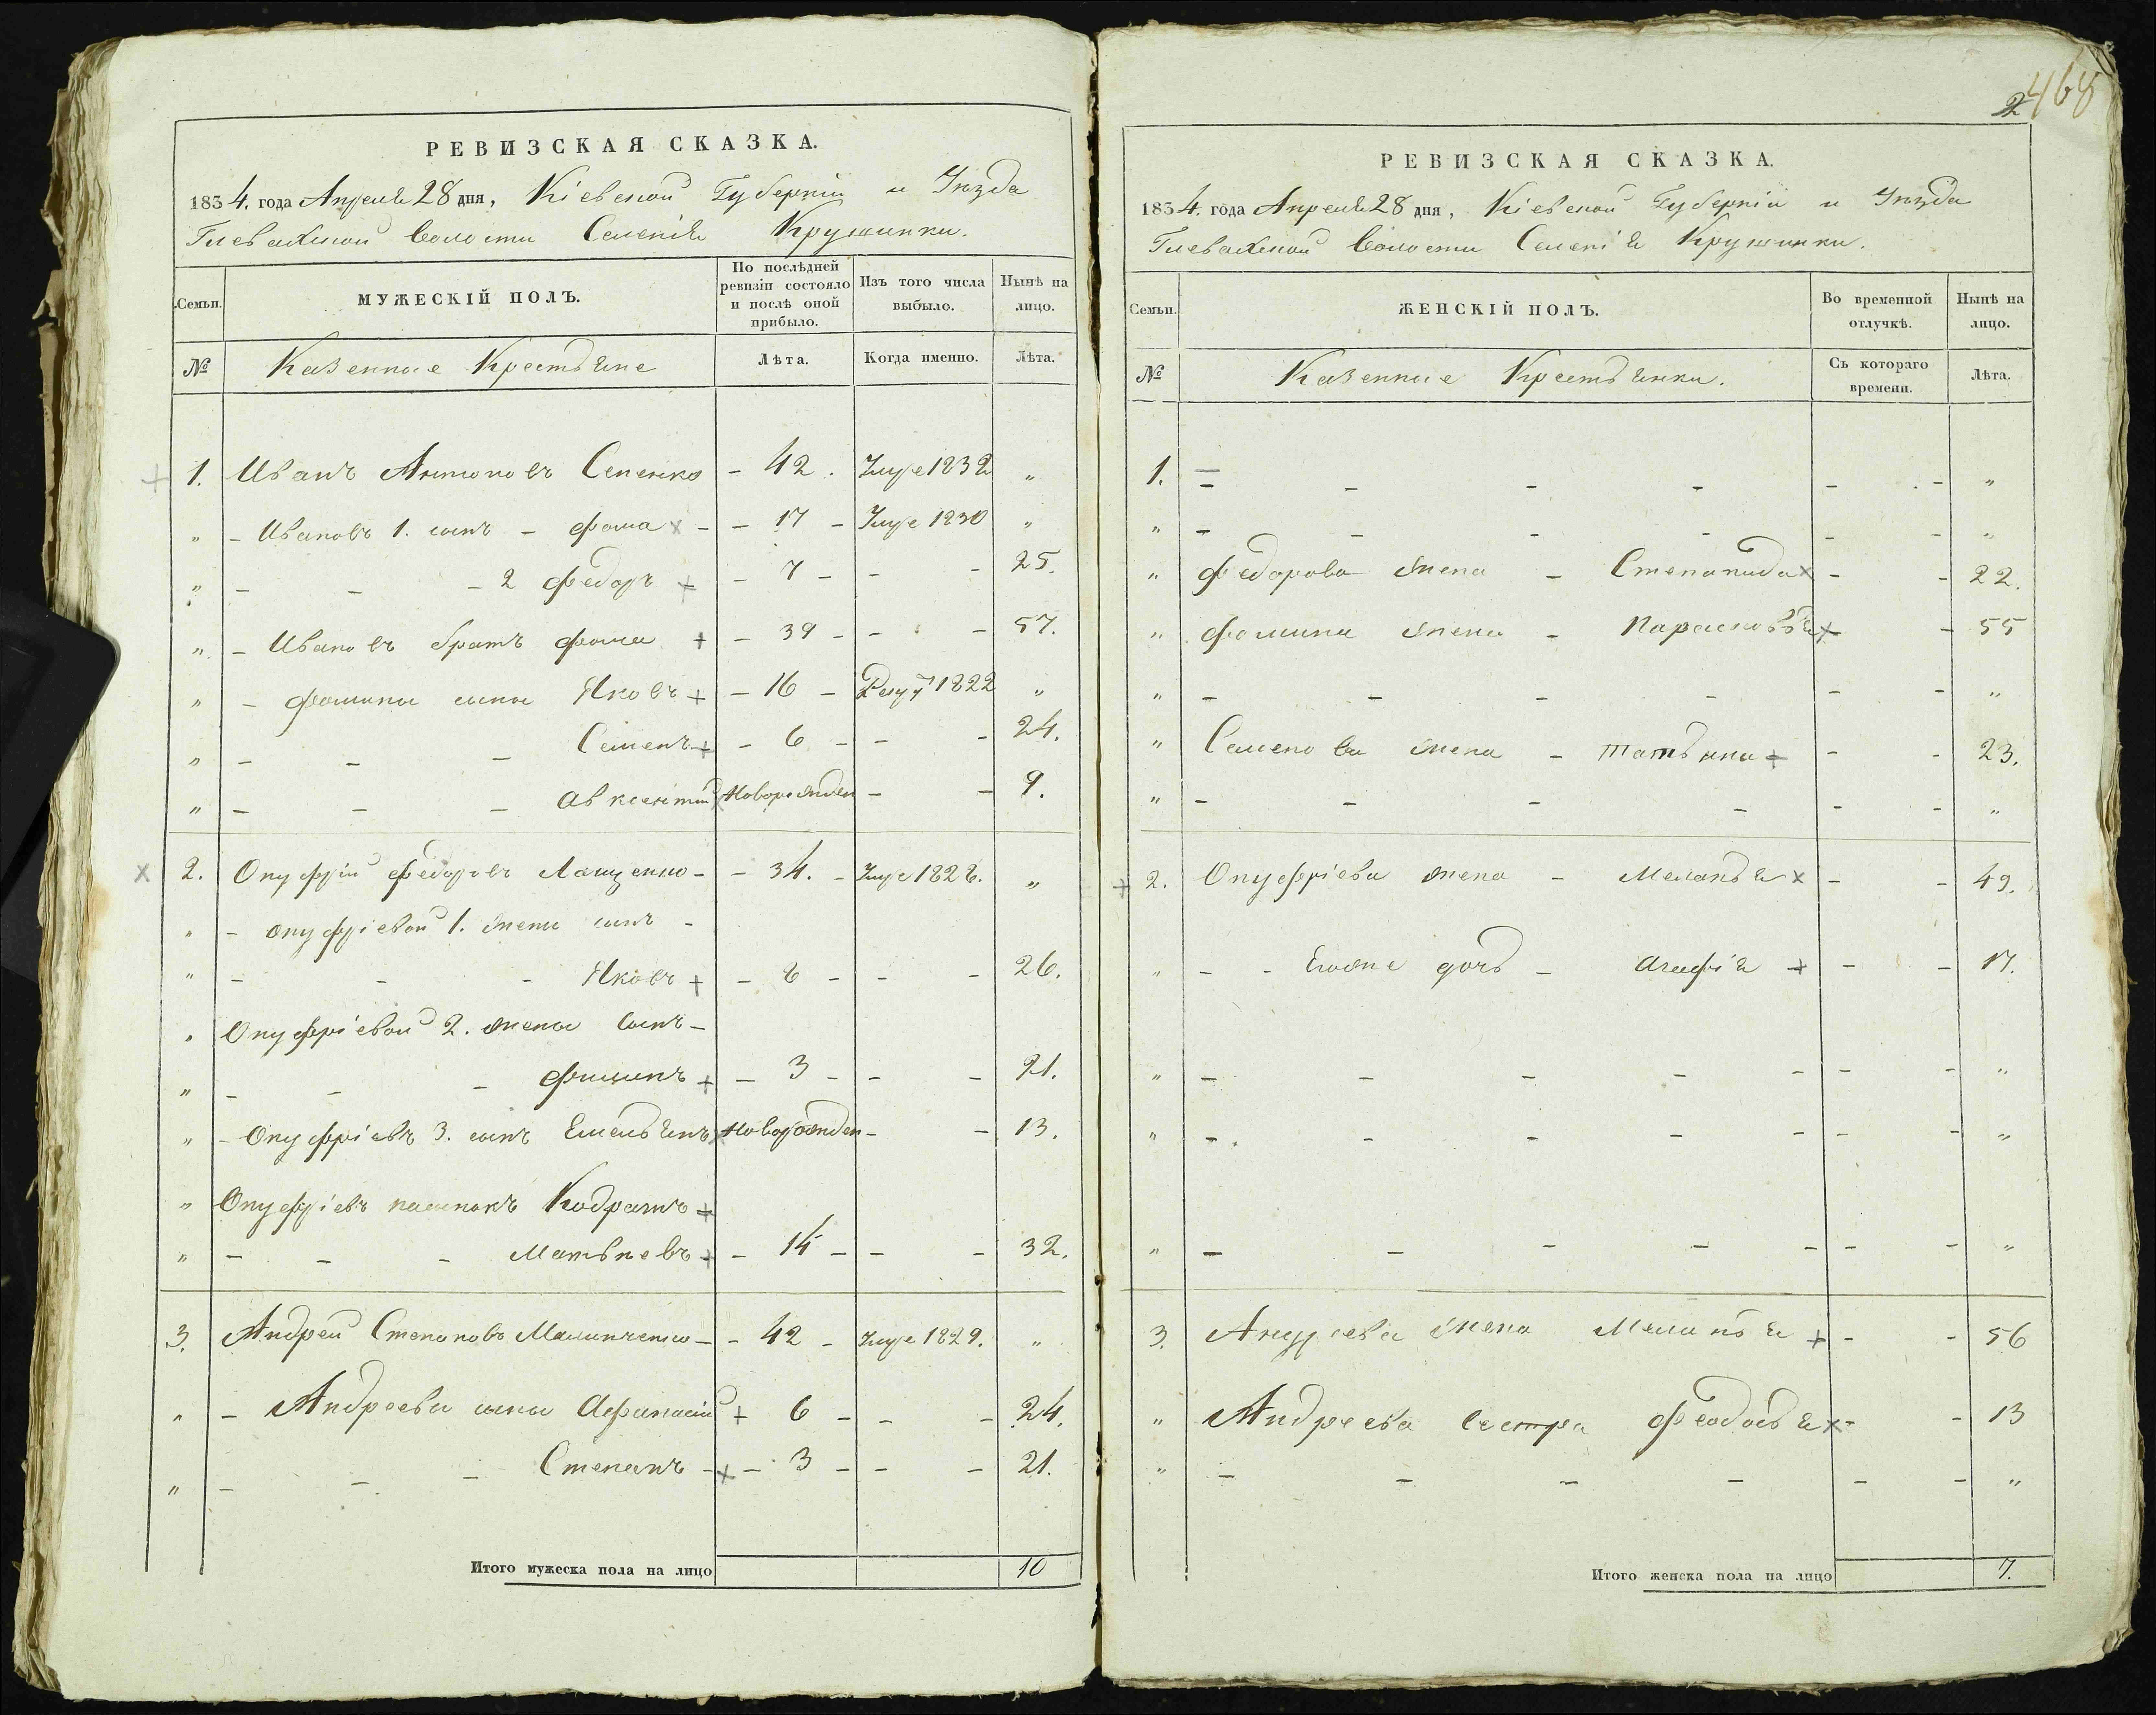 РЕВИЗСКАЯ СКАЗКА.
1834. года Апреля 28 дня, Кіевской Губерніи и Уѣзда
Глевахской Волости Селенія Крушинки.
Семьи.
МУЖЕСКІЙ ПОЛЪ.
По послѣдней ревизіи состояло и послѣ оной прибыло.
Изъ того числа выбыло.
Нынѣ на лицо.
№
Казенные Крестьяне
Лѣта.
Когда именно.
Лѣта.
1. Иванъ Антоновъ Сененко - 42. Умре 1832 "
" - Ивановъ 1. сынъ - Фома - - 17 - Умре 1830 "
" - - - 2 Федоръ - 7 - - - 25.
" - Ивановъ братъ Фома - 39 - - - 57.
" - Фомины сыны Яковъ - 16 - Рекру 1822 "
" - - - Семенъ - 6 - - - 24.
" - - - Авксентій Новорожден - - 9.
2. Онуфрій Федоровъ Лащенко - - 34. - Умре 1828. "
" - Онуфріевой 1. жены сынъ -
" - - - Яковъ - 8 - - - 26.
" Онуфріевой 2. жены сынъ -
" - - - Филипъ - 3 - - - 21.
" - Онуфріевъ 3. сынъ Емельянъ Новорожден - - 13.
" Онуфріевъ пасынокъ Кодратъ
" - - - Матвѣевъ - 14 - - - 32.
3. Андрей Степановъ - - 42 - Умре 1829. "
" - Андреевы сыны Афанасій 6 - - - 24.
" - - - Степанъ - - 3 - - - 21.
Итого мужеска пола на лицо 10
2 468
РЕВИЗСКАЯ СКАЗКА.
1834. года Апреля 28 дня, Кіевской Губерніи и Уѣзда
Глевахской Волости Селенія Крушинки.
Семьи.
ЖЕНСКІЙ ПОЛЪ.
Во временной отлучкѣ.
Нынѣ на лицо.
№
Казенные Крестьянки.
Съ котораго времени.
Лѣта.
1. - - - - - - "
" - - - - - - "
" Федорова жена - Степанида - - 22.
" Фомина жена - Парасковья - 55
" - - - - - - "
" Семенова жена - Татьяна - - 23.
" - - - - - - "
2. Онуфріева жена - Меланья - - 49.
" - - Егоже дочь - Агафія - - 17.
" - - - - - - - "
" - - - - - - - "
" - - - - - - - "
3. Андреева жена Меланья - - 56
" Андреева сестра Феодосья - - 13
" - - - - - - "
Итого женска пола на лицо 7.